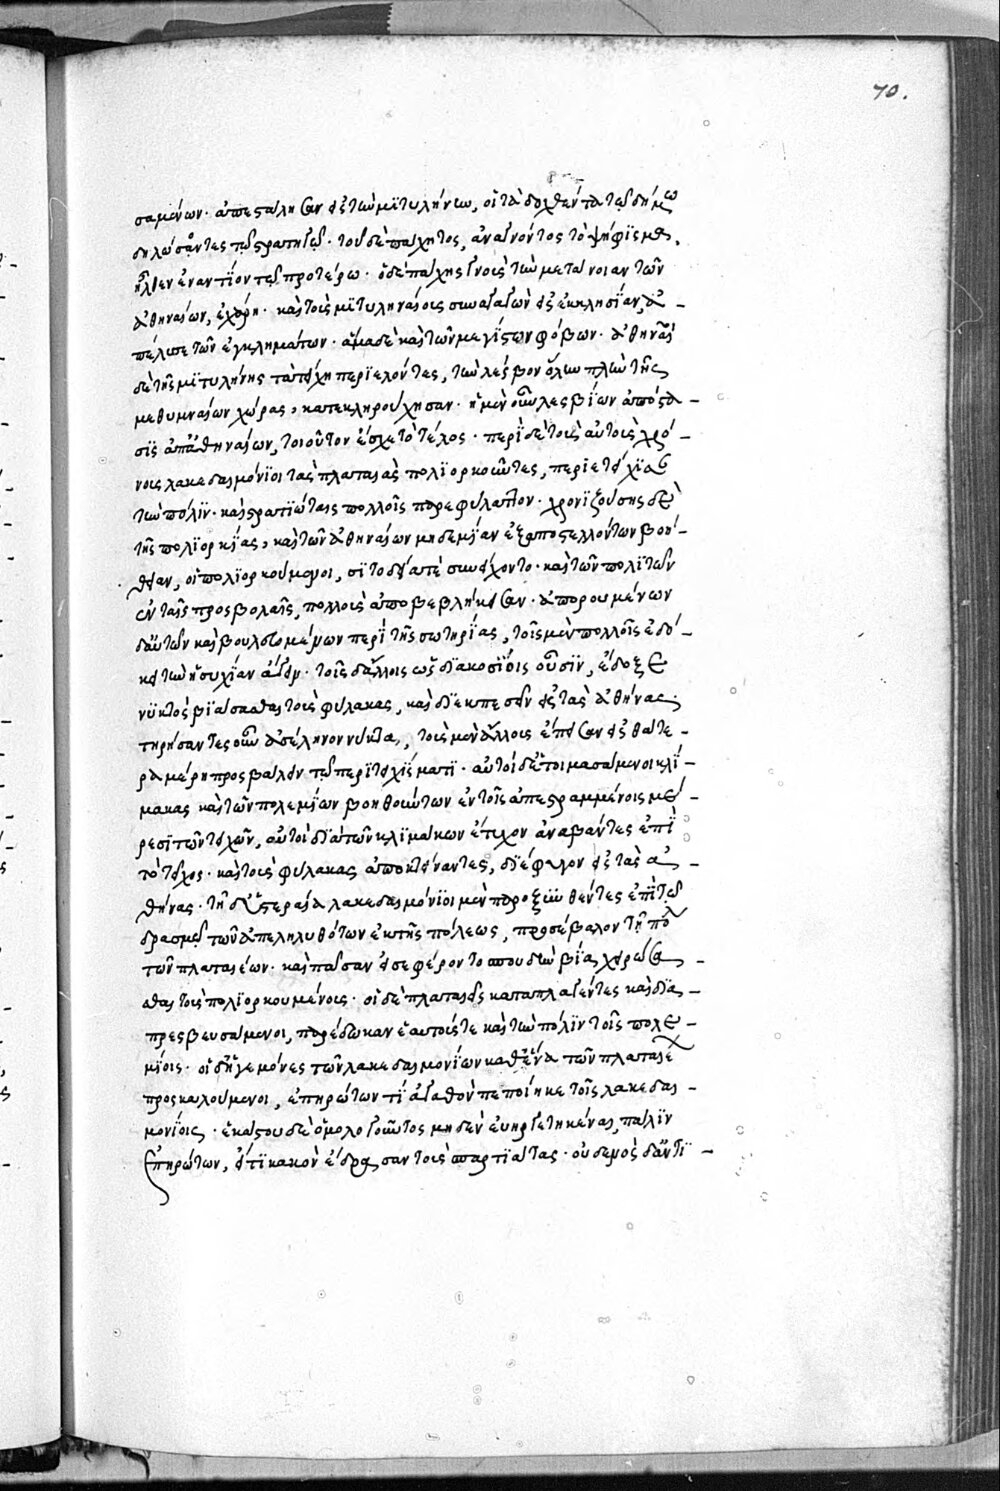 70.
σαμένων· ἀπέστάλησαν εἰς τὴν μϊτυλήνην, οἱ τὰ δοχθέντα τῶ δήμω
δηλώσοντες τῶ στρατηγῶ· τοῦ δὲ πάχητος, ἀναγνόντος τὸ ψήφϊσμα,
ἦλθεν ἐναντίον τῶ προτέρω· ὁ δὲ πάχης γνοὺς τὴν μετάνοιαν τῶν
ἀθηναίων, ἐχάρη· καὶ τοὺς μϊτυληναίους συναγαγὼν εἰς ἐκκλησίαν, ἀ-
πέλυσε τῶν ἐγκλημάτων· ἅμα δὲ καὶ τῶν μεγίστων φόβων· ἀθηναῖοι
δὲ τῆς μϊτυλήνης τὰ τείχη περιελόντες, τὴν λέσβον ὅλην πλὴν τῆς
μεθυμναίων χώρας, κατεκληρούχησαν· ἡ μὲν οὖν λεσβίων ἀπόστα-
σϊς ἀπ' ἀθηναίων, τοιοῦτον ἔσχε τὸ τέλος· περὶ δὲ τοὺς αὐτοὺς χρό-
νους λακεδαιμόνϊοι τὰς πλαταιὰς πολϊορκοῦντες, περιετείχισαν
τὴν πόλϊν· καὶ στρατϊώταις πολλοῖς παρεφύλαττον· χρονϊζούσης δὲ
τῆς πολϊορκίας, καὶ τῶν ἀθηναίων μηδεμίαν ἐξαποστελλόντων βοή-
θειαν, οἱ πολϊορκούμενοι, σϊτοδείᾳ τε συνείχοντο· καὶ τῶν πολϊτῶν
ἐν ταῖς προσβολαῖς, πολλοὺς ἀποβεβλήκεισαν· ἀπορουμένων
δ' αὐτῶν καὶ βουλευομένων περὶ τῆς σωτηρίας, τοῖς μὲν πολλοῖς ἐδό-
κει τὴν ἡσυχίαν ἄγειν· τοῖς δ' ἄλλοις ὡς δϊακοσίοις οὖσϊν, ἔδοξε
νϋκτὸς βϊάσασθαι τοὺς φύλακας, καὶ διεκπεσεῖν εἰς τὰς ἀθήνας·
τηρήσαντες οὖν ἀσέληνον νύκτα, τοὺς μὲν ἄλλους ἔπεισαν εἰς θάτε-
ρα μέρη προσβαλεῖν τῶ περιτειχίσματϊ· αὐτοὶ δ' ἑτοιμασάμενοι κλί-
μακας καὶ τῶν πολεμίων βοηθούντων ἐν τοῖς ἀπεστραμμένοις μέ-
ρεσϊ τῶν τειχῶν, αὐτοὶ δϊὰ τῶν κλϊμάκων ἔτυχον ἀναβάντες ἐπὶ
τὸ τεῖχος· καὶ τοὺς φύλακας ἀποκτείναντες, δϊέφυγον εἰς τὰς ἀ-
θήνας· τῇ δ' ὑστεραίᾳ λακεδαιμόνϊοι μὲν παροξυνθέντες ἐπὶ τῶ
δρασμῶ τῶν ἀπεληλυθότων ἐκ τῆς πόλεως, προσέβαλον τῇ πόλει
τῶν πλαταιέων· καὶ πᾶσαν εἰσεφέροντο σπουδὴν βίᾳ χειρώσα-
σθαι τοὺς πολϊορκουμένους· οἱ δὲ πλαταιεῖς καταπλαγέντες καὶ δϊα-
πρεσβευσάμενοι, παρέδωκαν ἑαυτούς τε καὶ τὴν πόλϊν τοῖς πολε-
μίοις· οἱ δ' ἡγεμόνες τῶν λακεδαιμονίων καθ' ἕνα τῶν πλαταιέων
προσκαλούμενοι, ἐπηρώτων τί ἀγαθὸν πεποίηκε τοῖς λακεδαι-
μονίοις· ἑκάστου δὲ ὁμολογοῦντος μηδὲν εὐηργετηκέναι, πάλϊν
ἐπηρώτων, εἴ τϊ κακὸν ἔδρασαν τοὺς σπαρτϊάτας· οὐδεμὸς δ' ἀντϊ-